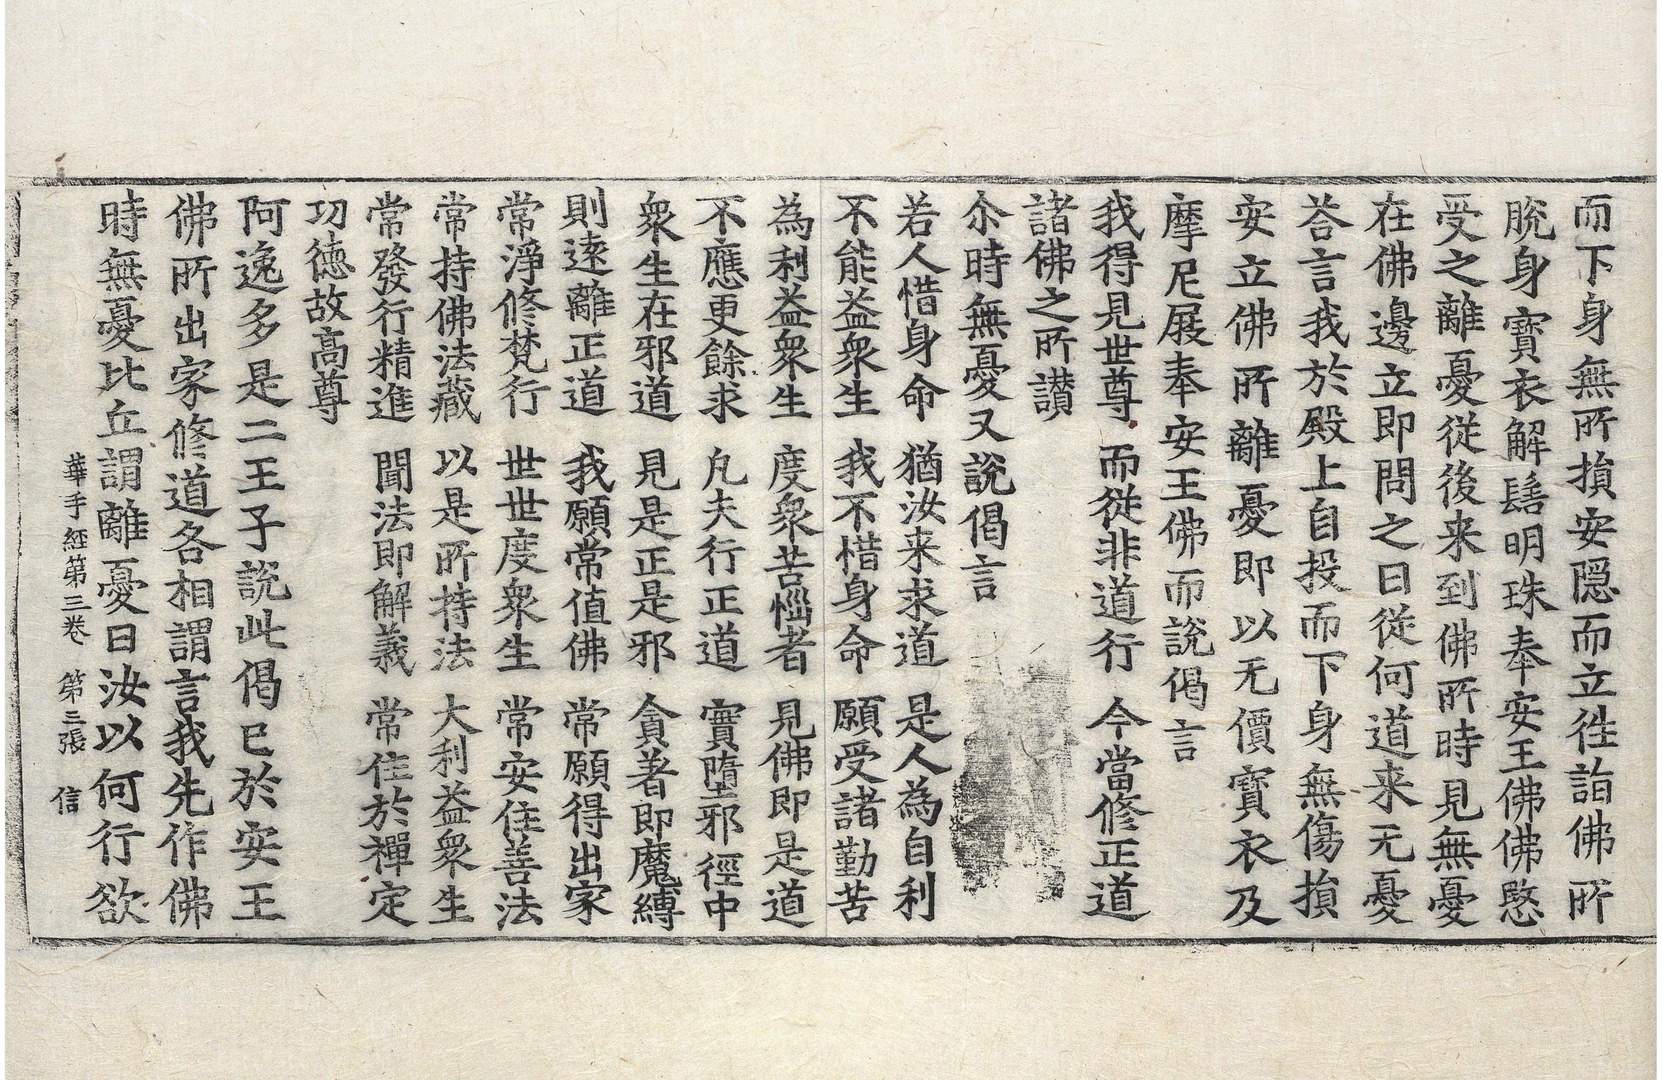 而下身無所損安隱而立往詣佛所
脫身寶衣解髻明珠奉安王佛佛愍
受之離憂從後来到佛所時見無憂
在佛邊立即問之曰從何道来无憂
荅言我於殿上自投而下身無傷損
安立佛所離憂即以无價寶衣及
摩尼屐奉安王佛而說偈言
我得見世尊 而從非道行 今當修正道
諸佛之所讃
尒時無憂又說偈言
若人惜身命 猶汝来求道 是人為自利
不能益衆生 我不惜身命 願受諸勤苦
為利益衆生 度衆苦惱者 見佛即是道
不應更餘求 凡夫行正道 實墮邪徑中
衆生在邪道 見是正是邪 貪著即魔縛
則遠離正道 我願常值佛 常願得出家
常淨修梵行 世世度衆生 常安住善法
常持佛法藏 以是所持法 大利益衆生
常發行精進 聞法即解義 常住於禪定
功德故高尊
阿逸多是二王子說此偈已於安王
佛所出家修道各相謂言我先作佛
時無憂比丘謂離憂曰汝以何行欲
華手經第三卷 第三張 信